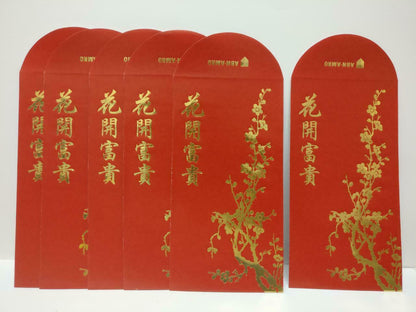 花開富貴
花開富貴
花開富貴
花開富貴
花開富貴
ABN·AMRO
花開富貴
ABN·AMRO